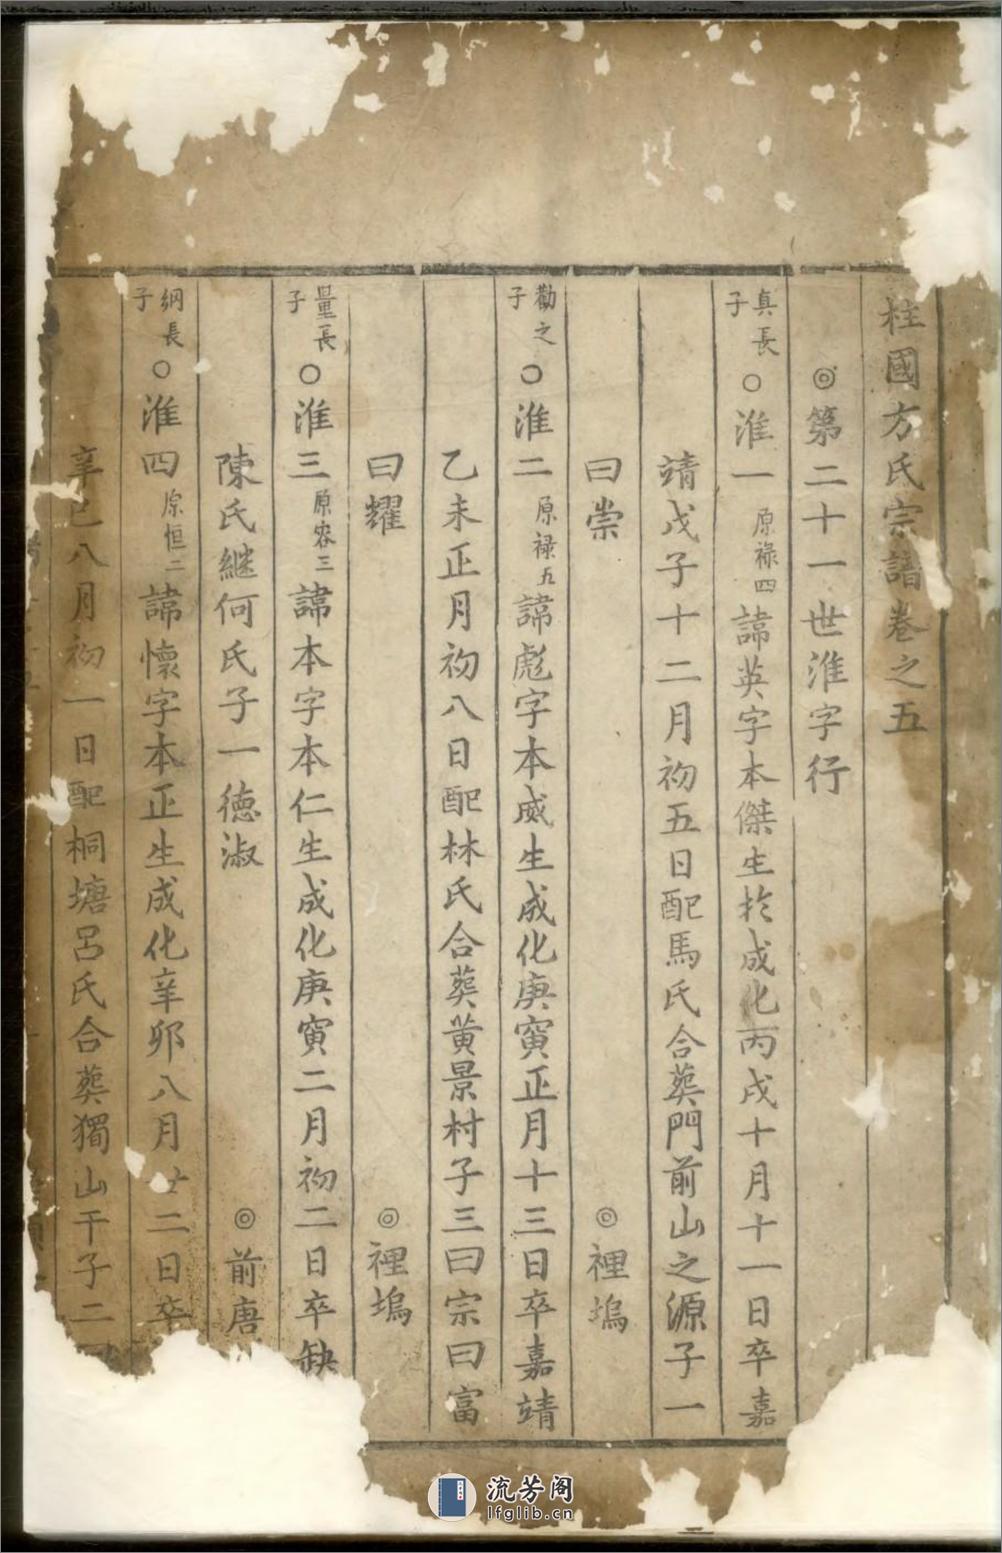 柱國方氏宗譜卷之五
◎第二十一世淮字行
真長子○淮一原祿四諱英字本傑生於成化丙戌十月十一日卒嘉
靖戊子十二月初五日配馬氏合葬門前山之源子一
曰崇 ◎裡塢
勸之子○淮二原祿五諱彪字本威生成化庚寅正月十三日卒嘉靖
乙未正月初八日配林氏合葬黃景村子三曰宗曰富
曰耀 ◎裡塢
量長子○淮三原容三諱本字本仁生成化庚寅二月初二日卒缺
陳氏繼何氏子一德淑 ◎前唐
綱長子○淮四原恒二諱懷字本正生成化辛卯八月廿二日卒
辛巳八月初一日配桐塘呂氏合葬獨山干子二
流芳阁
lfglib.cn